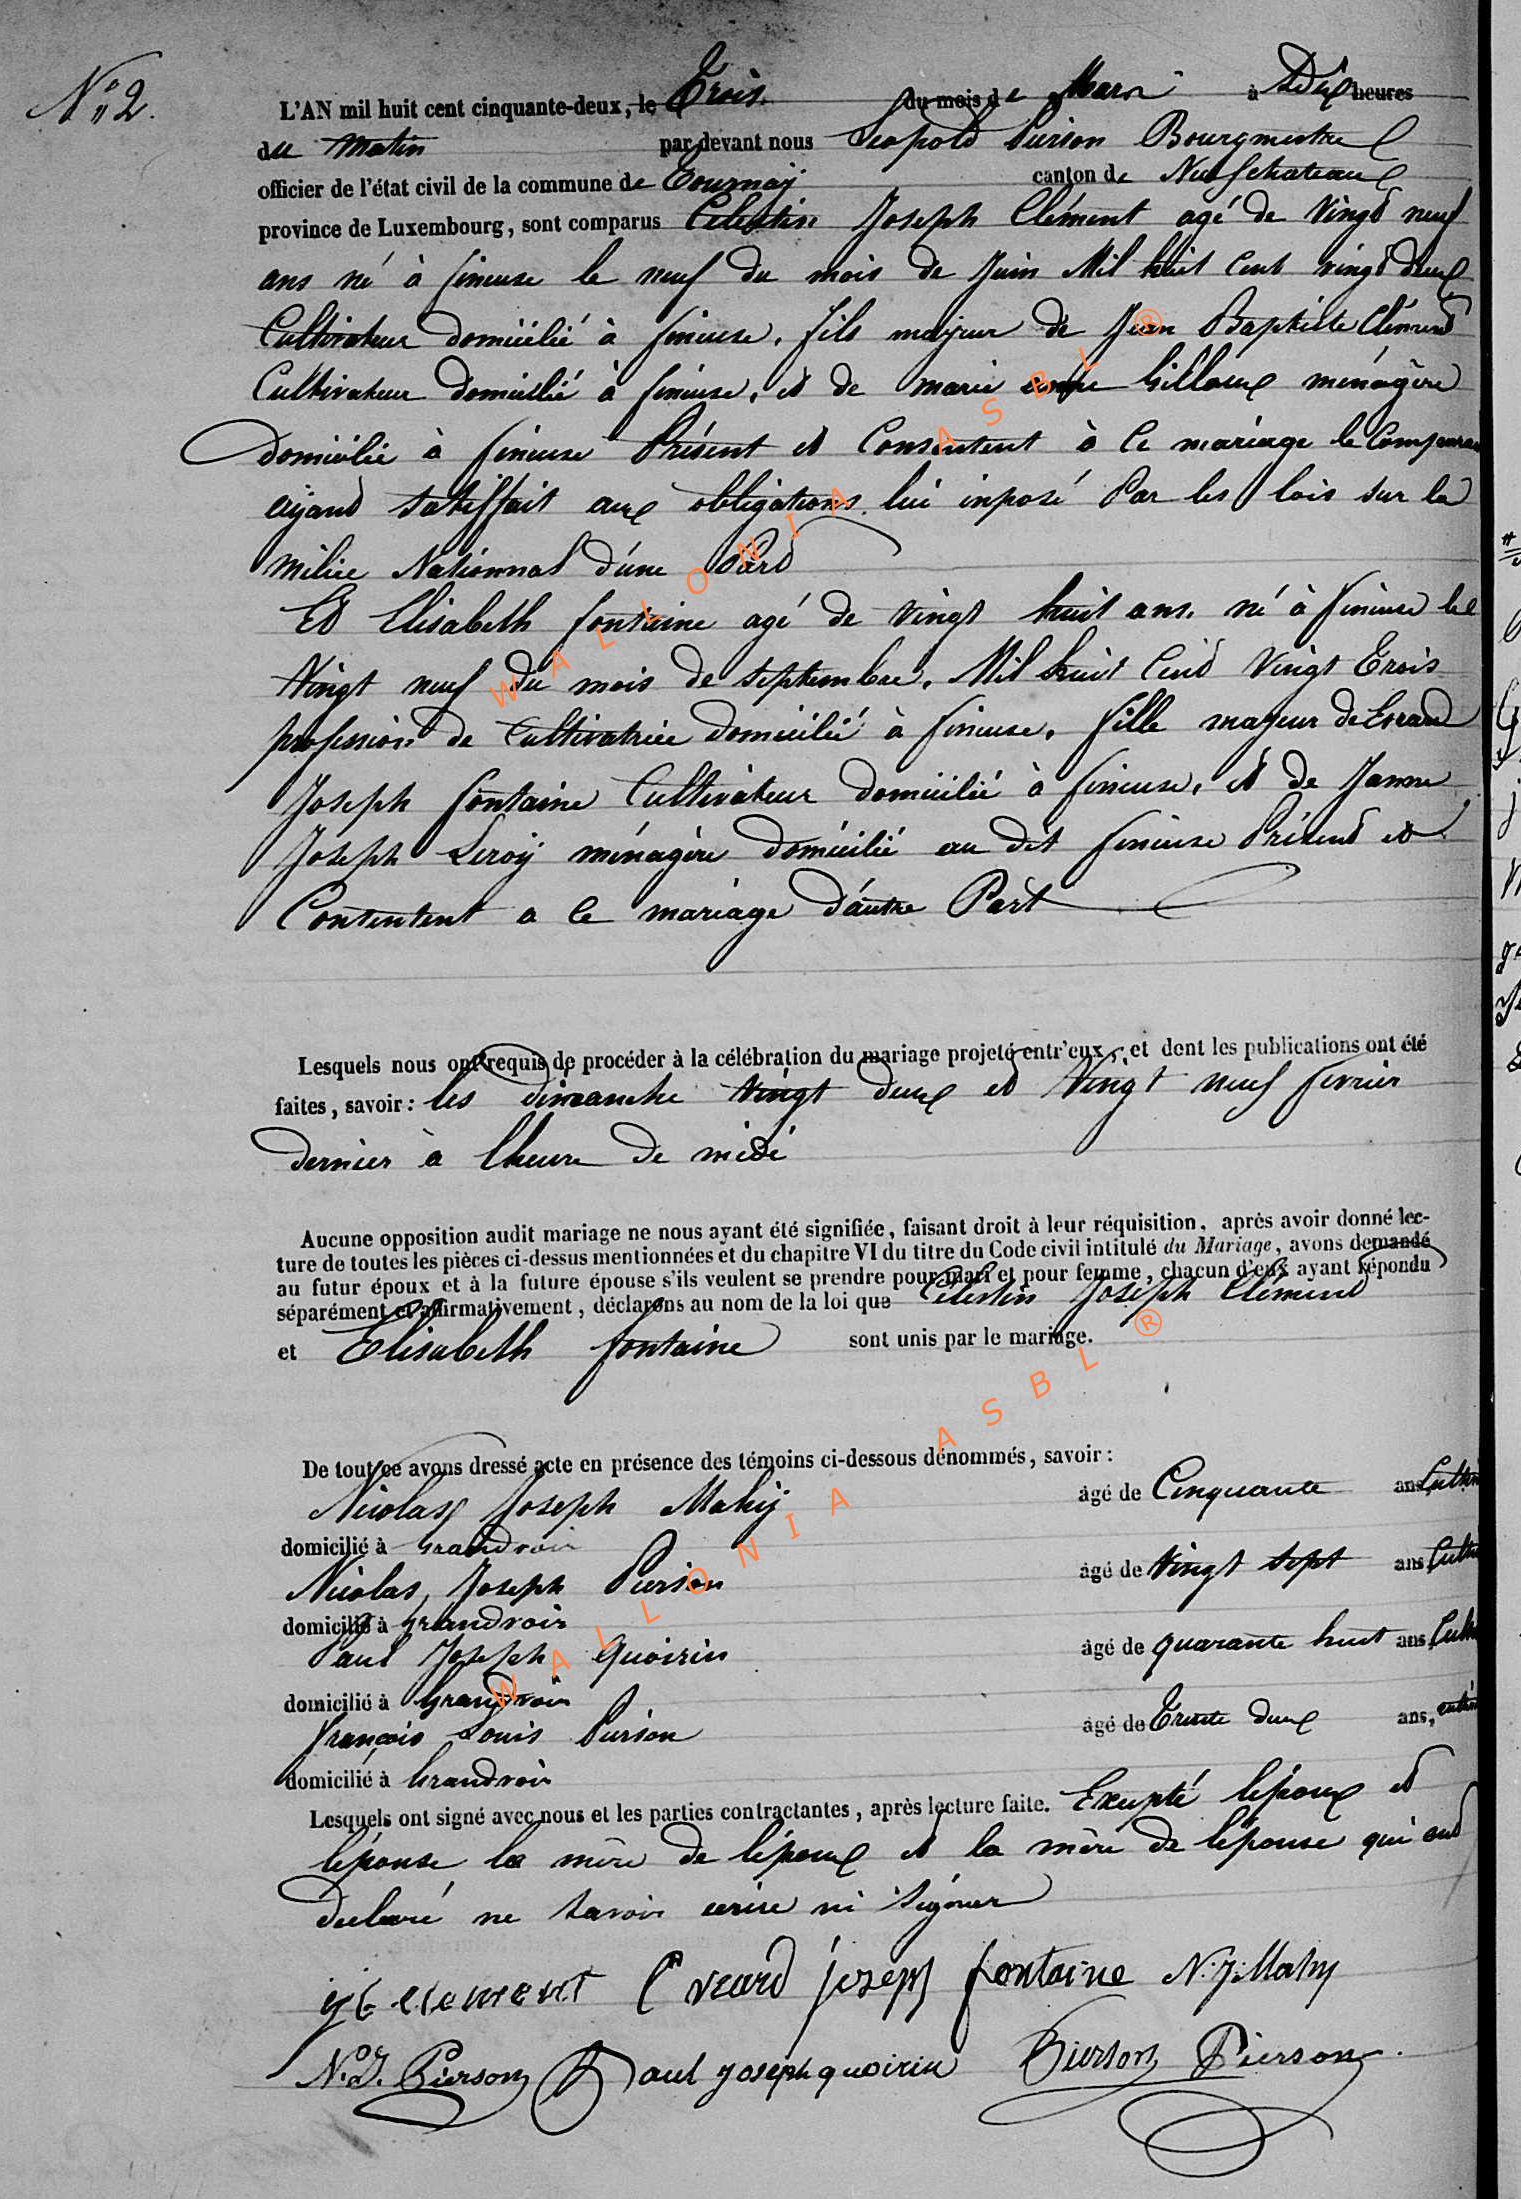 N° 2.
L'AN mil huit cent cinquante-deux, le Trois du mois de Mars à Dix heures
du matin par devant nous Leopold Pierson Bourgmestre
officier de l'état civil de la commune de Tournay canton de Neufchateau
province de Luxembourg, sont comparus Celestin Joseph Clément agé de Vingt neuf
ans né à fineuse le neuf du mois de Juin Mil huit Cent vingt deux
Cultivateur domicilié à fineuse, fils majeur de Jean Baptiste Clément
Cultivateur domicilié à fineuse, et de marie Gilloux ménagère
domicilie à fineuse Présent et Consentent à Ce mariage le Comparant
ayand satisffait aux obligations lui inposé Par les lois sur la
milice Nationnal d'une Pard
Et Elisabeth fontaine agé de vingt huit ans, né à fineuse le
Vingt neuf du mois de septembre, Mil huit Cend Vingt Trois
profession de Cultivatrice domicilié à fineuse, fille majeur de Evrard
Joseph fontaine Cultivateur domicilié à fineuse, et de Janne
Joseph Leroy ménagère domicilié au dit fineuse Présend et
Contentent a Ce mariage d'autre Part
Lesquels nous ont requis de procéder à la célébration du mariage projeté entr'eux, et dont les publications ont été
faites, savoir: les dimanche vingt deux et Vingt neuf fevrier
dernier à lheure de midi
Aucune opposition audit mariage ne nous ayant été signifiée, faisant droit à leur réquisition, après avoir donné lec-
ture de toutes les pièces ci-dessus mentionnées et du chapitre VI du titre du Code civil intitulé du Mariage, avons demandé
au futur époux et à la future épouse s'ils veulent se prendre pour mari et pour femme, chacun d'eux ayant répondu
séparément et affirmativement, déclarons au nom de la loi que Célestin Joseph Clémend
et Elisabeth fontaine sont unis par le mariage.
De tout ce avons dressé acte en présence des témoins ci-dessous dénommés, savoir:
Nicolas Joseph Mahy âgé de Cinquante ans
domicilié à Grandvoir
Nicolas Joseph Pierson âgé de Vingt sept ans
domicilié à Grandvoir
Paul Joseph Quoirin âgé de quarante huit ans
domicilié à Grandvoir
françois Louis Pierson âgé de Trente deux ans,
domicilié à Grandvoir
Lesquels ont signé avec nous et les parties contractantes, après lecture faite. Exepté lépoux et
lépouse la mère de lépoux et la mère de lépouse qui ond
declaré ne savoir ecrire ni signer
clement Evrard joseph fontaine N.J. Mahy
N.J. Pierson Paul Joseph quoirin Pierson Pierson
WALLONIA ASBL ®
WALLONIA ASBL ®